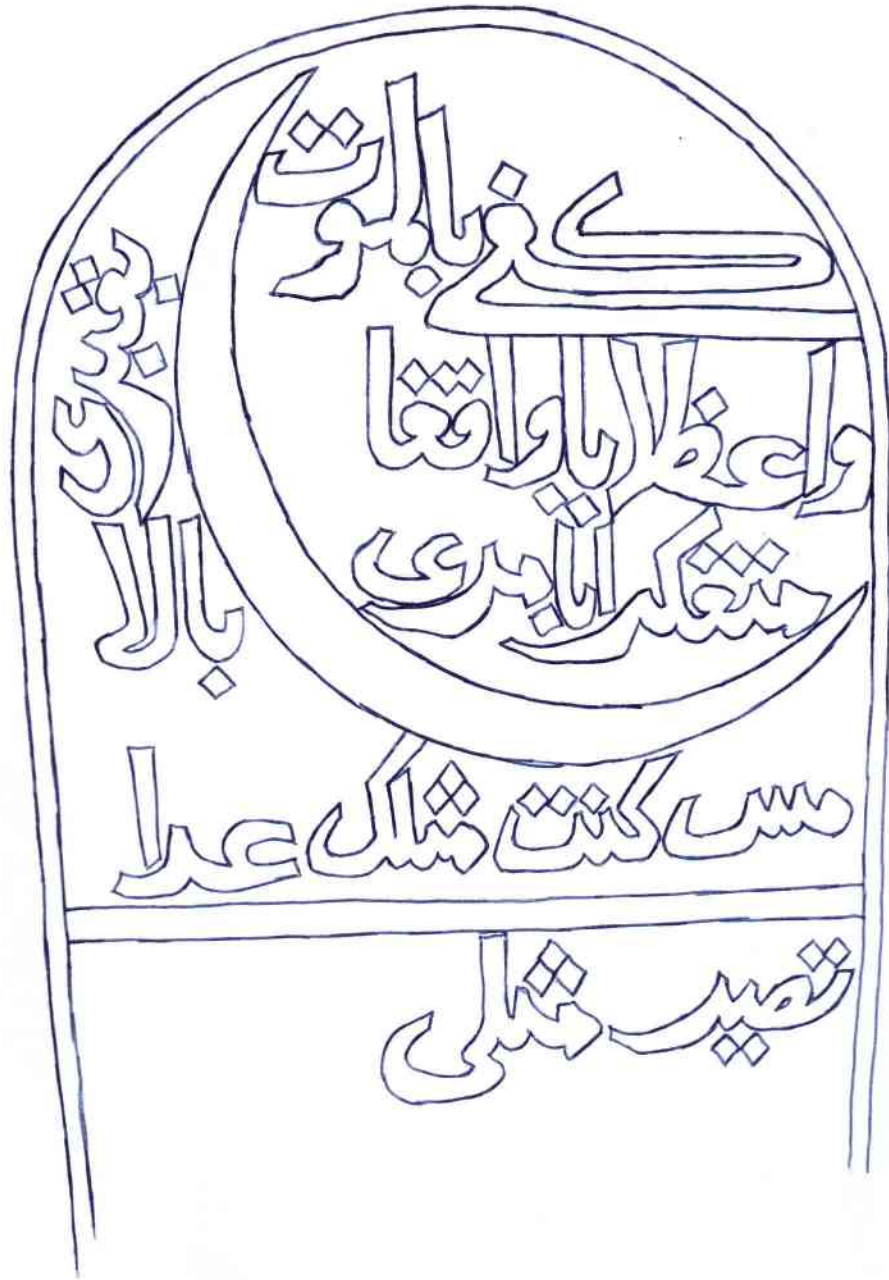 كفى بالموت
واعظا يا واقفا
متفكرا بامرى
بالا
مس كنت مثلك عدا
تصير مثلى